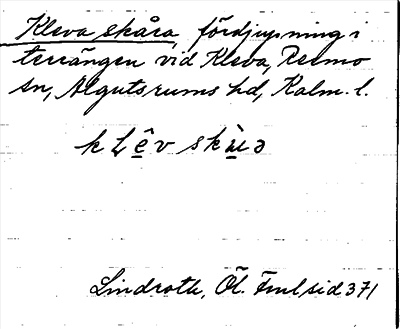 Kleva skåra, fördjupning i
terrängen vid Kleva, Resmo
sn, Algutsrums hd, Kalm. l.
Lindroth, Öl. Fml sid 371